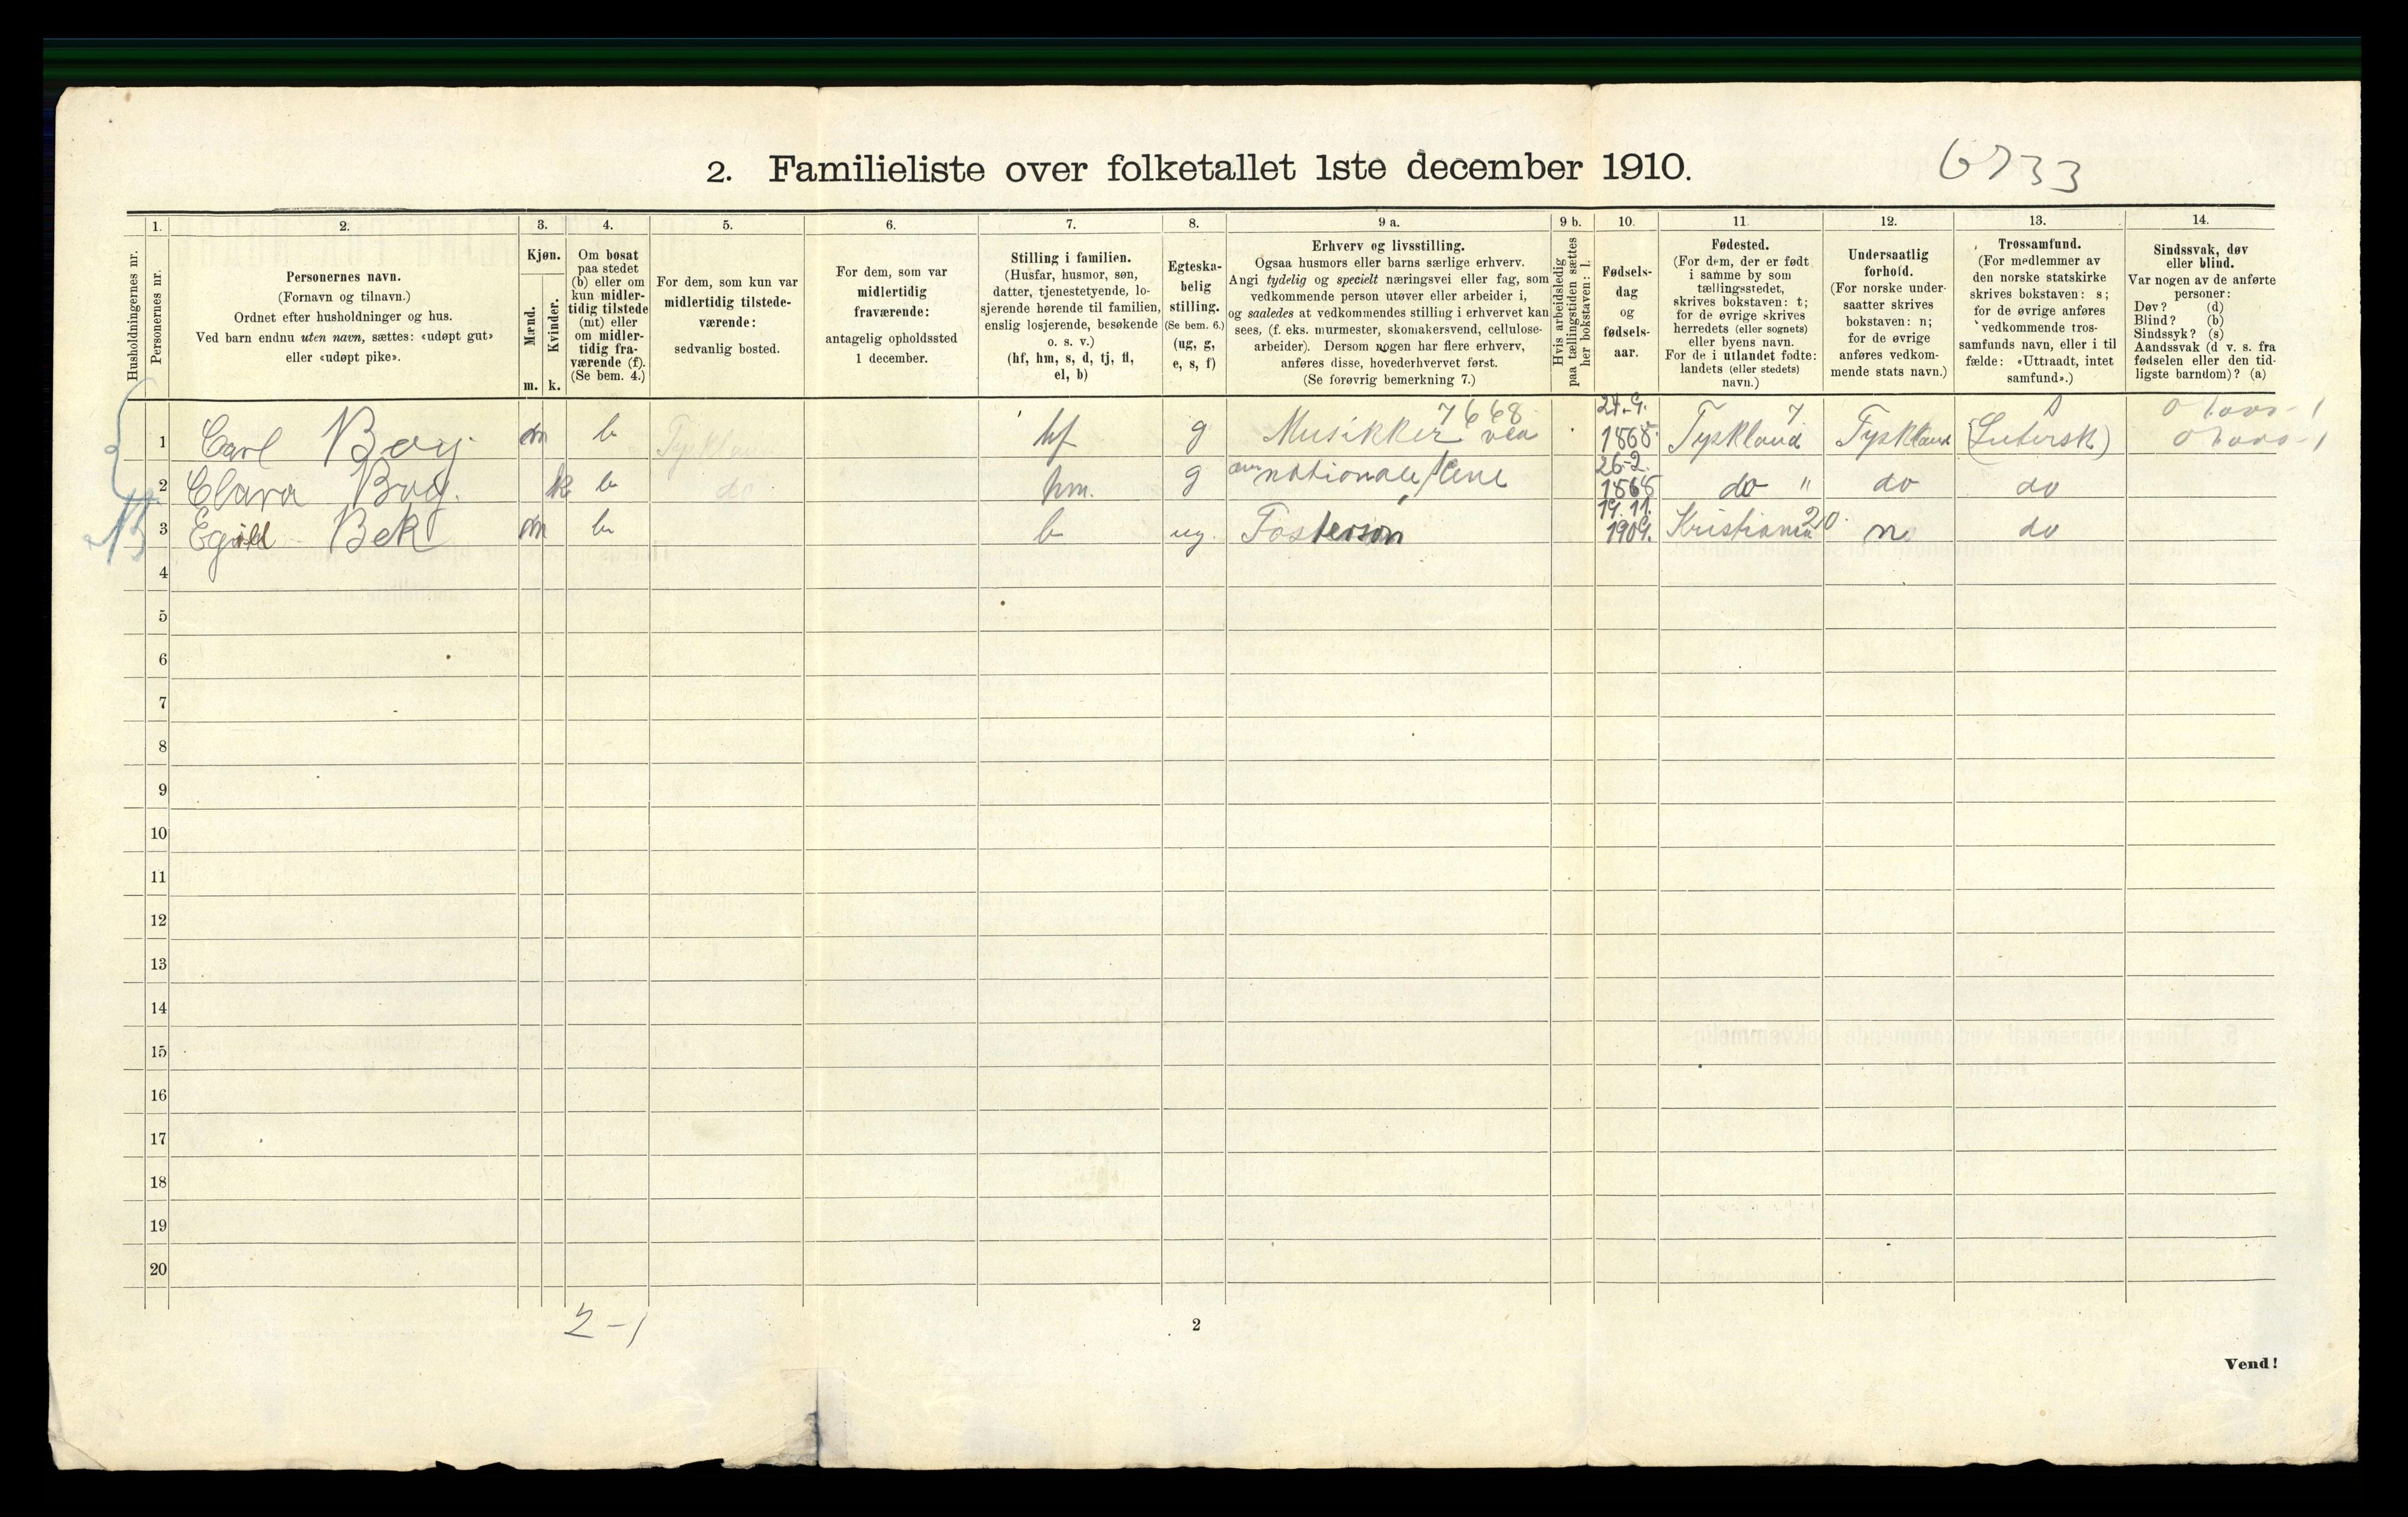 2. Familieliste over folketallet 1ste december 1910.
6733
Husholdningernes nr.
1.
Personernes nr.
2.
Personernes navn.
(Fornavn og tilnavn.)
Ordnet efter husholdninger og hus.
Ved barn endnu uten navn, sættes: «udøpt gut»
eller «udøpt pike».
3.
Kjøn.
Mænd.
Kvinder.
m. k.
4.
Om bosat
paa stedet
(b) eller om
kun midler-
tidig tilstede
(mt) eller
om midler-
tidig fra-
værende (f).
(Se bem. 4.)
5.
For dem, som kun var
midlertidig tilstede-
værende:
sedvanlig bosted.
6.
For dem, som var
midlertidig
fraværende:
antagelig opholdssted
1 december.
7.
Stilling i familien.
(Husfar, husmor, søn,
datter, tjenestetyende, lo-
sjerende hørende til familien,
enslig losjerende, besøkende
o. s. v.)
(hf, hm, s, d, tj, fl,
el, b)
8.
Egteska-
belig
stilling.
(Se bem. 6.)
(ug, g,
e, s, f)
9 a.
Erhverv og livsstilling.
Ogsaa husmors eller barns særlige erhverv.
Angi tydelig og specielt næringsvei eller fag, som
vedkommende person utøver eller arbeider i,
og saaledes at vedkommendes stilling i erhvervet kan
sees, (f. eks. murmester, skomakersvend, cellulose-
arbeider). Dersom nogen har flere erhverv,
anføres disse, hovederhvervet først.
(Se forøvrig bemerkning 7.)
9 b.
Hvis arbeidsledig
paa tællingstiden sættes
her bokstaven: l.
10.
Fødsels-
dag
og
fødsels-
aar.
11.
Fødested.
(For dem, der er født
i samme by som
tællingsstedet,
skrives bokstaven: t;
for de øvrige skrives
herredets (eller sognets)
eller byens navn.
For de i utlandet fødte:
landets (eller stedets)
navn.)
12.
Undersaatlig
forhold.
(For norske under-
saatter skrives
bokstaven: n;
for de øvrige
anføres vedkom-
mende stats navn.)
13.
Trossamfund.
(For medlemmer av
den norske statskirke
skrives bokstaven: s;
for de øvrige anføres
vedkommende tros-
samfunds navn, eller i til
fælde: «Uttraadt, intet
samfund».)
14.
Sindssvak, døv
eller blind.
Var nogen av de anførte
personer:
Døv? (d)
Blind? (b)
Sindssyk? (s)
Aandssvak (d v. s. fra
fødselen eller den tid-
ligste barndom)? (a)
7668 24.9. 7
1 Carl Boy m b Tyskland hf g Musikker ved 1868 Tyskland Tyskland (Lutersk)
26-2.
2 Clara Boy. k b do hm. g nationale scene 1868 do " do do
19.11. 20.
3 Egild Bek m b b ug. Fosterson 1909. Kristiania n do
4
5
6
7
8
9
10
11
12
13
14
15
16
17
18
19
20
2-1
2
Vend!